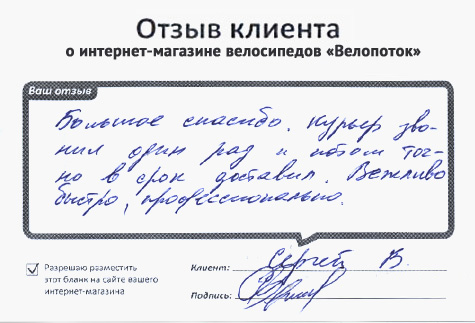 Отзыв клиента
о интернет-магазине велосипедов «Велопоток»
Ваш отзыв
Большое спасибо. Курьер зво-
нил один раз и потом точ-
но в срок доставил. Вежливо
быстро, профессионально.
Разрешаю разместить
этот бланк на сайте вашего
интернет-магазина
Клиент: Сергей В.
Подпись: